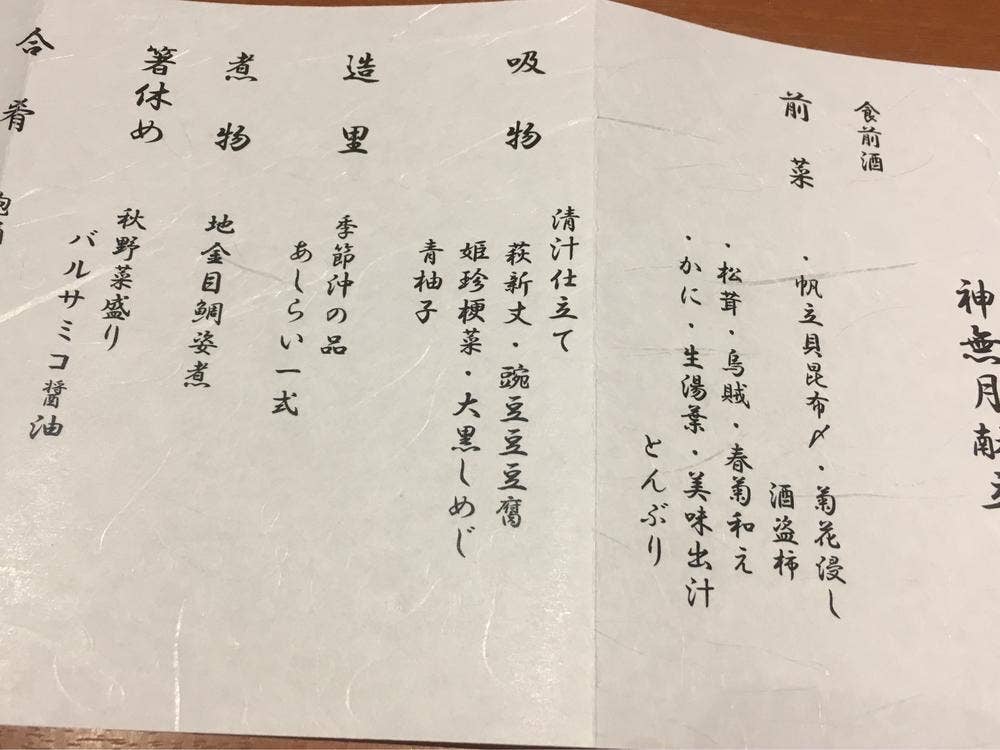 神無月献立
食前酒
前菜
・帆立貝昆布〆・菊花浸し
酒盗柿
・松茸・烏賊・春菊和え
・かに・生湯葉・美味出汁
とんぶり
吸物
清汁仕立て
萩新丈・豌豆豆豆腐
姫珍梗菜・大黒しめじ
青柚子
造里
季節沖の品
あしらい一式
煮物
地金目鯛姿煮
箸休め
秋野菜盛り
バルサミコ醤油
合肴